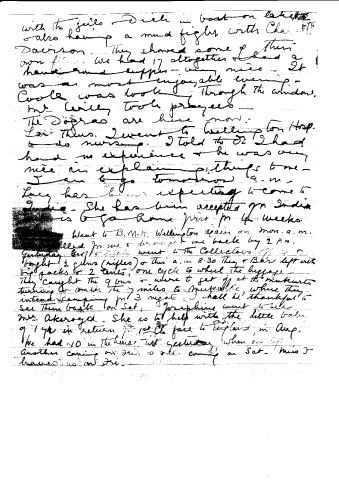 with the girls & Dick in boat on lake
& also having a mud fight with Cha
Davison. They showed some of their
own films. We had 17 altogether & had a
hand round supper - nice. It
was a most enjoyable evening.
Cooly was looking through the window.
Mr Willy took prayers -
The Dopras are here now.
For Thurs. I went to Wellington Hosp.
to do nursing. I told the Dr I had
had no experience & he was very
nice an explain things to me -
I am to go tomorrow a.m. -
Lucy has been expecting to come to
India. She has been accepted for India
is to go home first for 4 weeks.
Went to B.M.H. Wellington again on Mon. a.m.
called for me & brought me back by 2 pm.
yesterday & Dick went to the Collectors
2 guns (rifles) & this a.m. 8.30 they & Bari left with
packs & 2 tents, one cycle to wheel the luggage.
They caught the 9 bus & were to get off at the
turning & walk the 7 miles to, where they
intend camping for 3 nights. I shall be thankful to
see them back on Sat. Josephine went to see
Mrs Akeroyd. She is to help with the little babe
of 1 yr in return for 1st Cl. fare to England, in Aug.
We had 10 in the house till yesterday when one left
Another coming on Fri. & one coming on Sat. Miss J
leaves us on Fri.